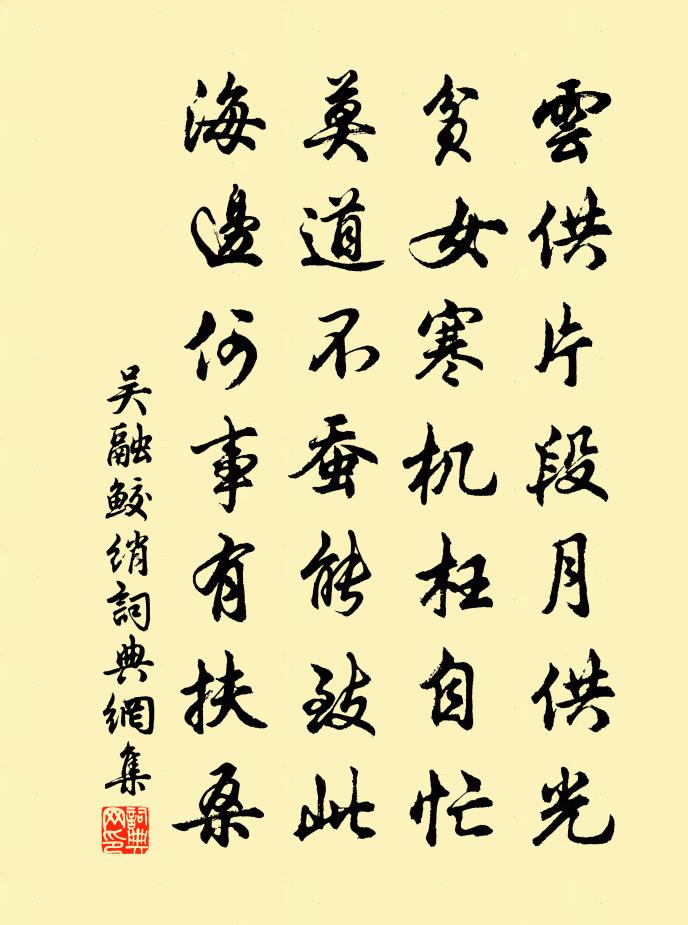 雲供片段月供光
貧女寒机枉自忙
莫道不蚕能致此
海邊何事有扶桑
吴融鮫绡詞典網集
詞典网印